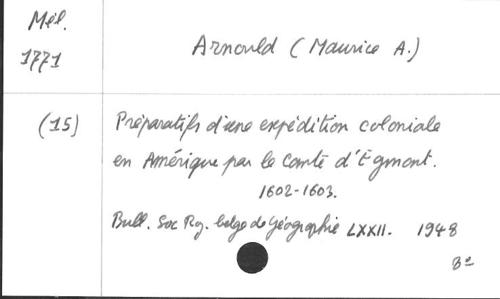 Mél.
1771
Arnould (Maurice A.)
(15)
Préparatifs d'une expédition coloniale
en Amérique par le Comte d'Egmont.
1602-1603.
Bull. Soc Roy. belge de Géographie LXXII. 1948
8º